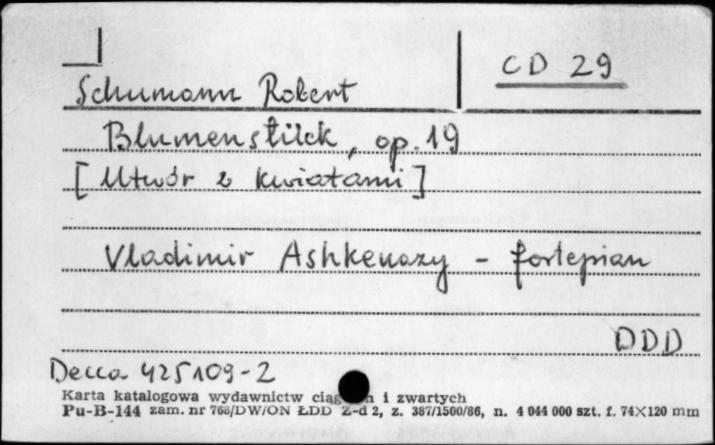 CD 29
Schumann Robert
Blumenstück, op. 19
[Utwór z kwiatami]
Vladimir Ashkenazy - fortepian
DDD
Decca 425109-2
Karta katalogowa wydawnictw i zwartych
Pu-B-144 zam. nr 768/DW/ON ŁDD Z-d 2, z. 387/1500/86, n. 4 044 000 szt. f. 74×120 mm